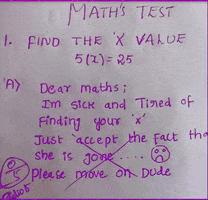 MATH'S TEST
1. FIND THE 'X' VALUE
5(x)=25
A) Dear maths;
Im sick and Tired of
Finding your 'x'
Just accept the fact tha
she is gone ....
0/5
Please move on Dude